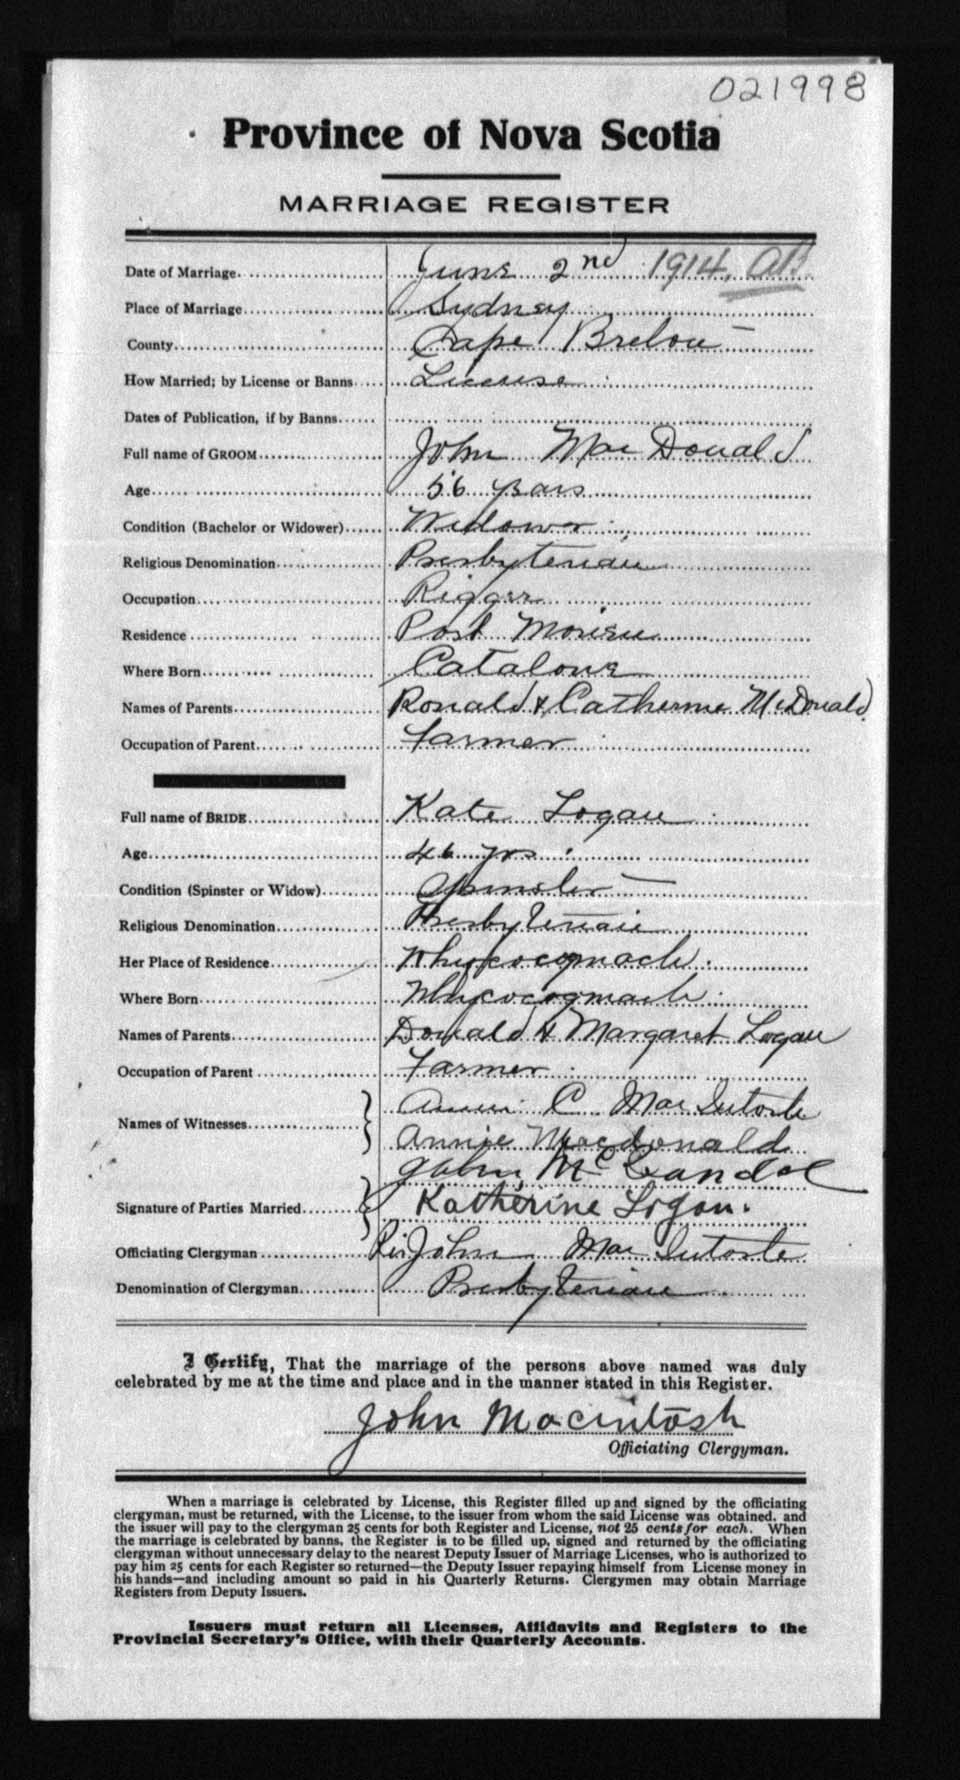 021998
Province of Nova Scotia
MARRIAGE REGISTER
Date of Marriage June 2nd 1914. AB.
Place of Marriage Sydney
County Cape Breton
How Married; by License or Banns License
Dates of Publication, if by Banns
Full name of GROOM John MacDonald
Age 56 years
Condition (Bachelor or Widower) Widower
Religious Denomination Presbyterian
Occupation Rigger
Residence Port Morien
Where Born Catalone
Names of Parents Ronald & Catherine McDonald
Occupation of Parent Farmer
Full name of BRIDE Kate Logan
Age 46 yrs
Condition (Spinster or Widow) Spinster
Religious Denomination Presbyterian
Her Place of Residence Whycocogmach
Where Born Whycocogmach
Names of Parents Donald & Margaret Logan
Occupation of Parent Farmer
Names of Witnesses Annie C. MacIntosh
Annie Macdonald
John
Signature of Parties Married Katherine Logan.
Officiating Clergyman Rev John MacIntosh
Denomination of Clergyman Presbyterian
I Certify, That the marriage of the persons above named was duly
celebrated by me at the time and place and in the manner stated in this Register.
John Macintosh
Officiating Clergyman.
When a marriage is celebrated by License, this Register filled up and signed by the officiating
clergyman, must be returned, with the License, to the issuer from whom the said License was obtained. and
the issuer will pay to the clergyman 25 cents for both Register and License, not 25 cents for each. When
the marriage is celebrated by banns, the Register is to be filled up, signed and returned by the officiating
clergyman without unnecessary delay to the nearest Deputy Issuer of Marriage Licenses, who is authorized to
pay him 25 cents for each Register so returned—the Deputy Issuer repaying himself from License money in
his hands—and including amount so paid in his Quarterly Returns. Clergymen may obtain Marriage
Registers from Deputy Issuers.
Issuers must return all Licenses, Affidavits and Registers to the
Provincial Secretary's Office, with their Quarterly Accounts.